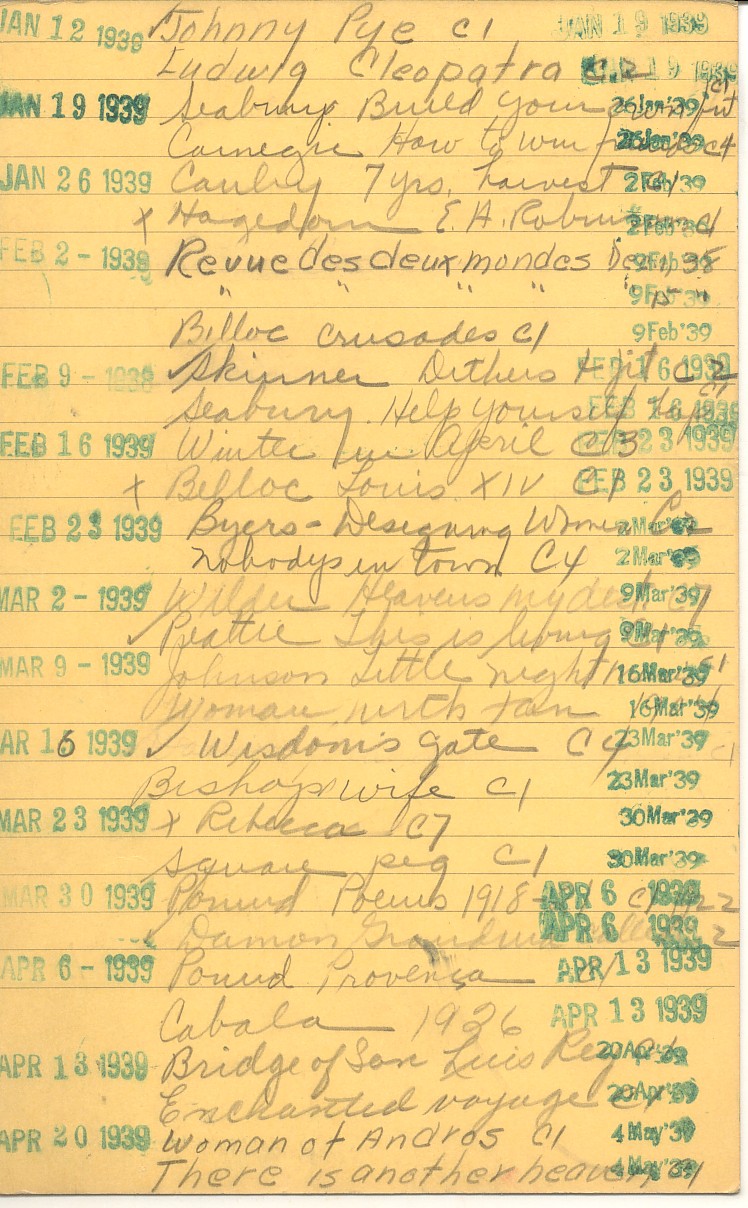 JAN 12 1939 Johnny Pye C1 JAN 19 1939
Ludwig Cleopatra C2 19 1939
JAN 19 1939 Seabury Build your own C1 26Jan'39
Carnegie How to win C4 26Jan'39
JAN 26 1939 Canby 7 yrs. harvest C1 2Feb'39
x Hagedorn E. A. Robinson C1 2Feb'39
FEB 2 - 1939 Revue des deux mondes Dec 1, 38 9Feb'39
" " " " " 15 " 9Feb'39
Billoc Crusades C1 9Feb'39
FEB 9 - 1939 Skinner Dithers + jit C2 FEB 16 1939
Seabury. Help yourself C1 FEB 16 1939
FEB 16 1939 Winter in April C3 FEB 23 1939
x Belloc Louis XIV C1 FEB 23 1939
FEB 23 1939 Byers - Designing Women C2 2Mar'39
Nobodys in town C4 2Mar'39
MAR 2 - 1939 Wilder Heavens my dest C7 9Mar'39
Peattie This is living C1 9Mar'39
MAR 9 - 1939 Johnson Little night C1 16Mar'39
Woman with fan 16Mar'39
MAR 16 1939 Wisdom's gate C4 23Mar'39
Bishops wife C1 23Mar'39
MAR 23 1939 x Rebecca C7 30Mar'39
Square peg C1 30Mar'39
MAR 30 1939 Pound Poems 1918- APR 6 1939
Damon APR 6 1939
APR 6 - 1939 Pound Provença APR 13 1939
Cabala 1926 APR 13 1939
APR 13 1939 Bridge of San Luis Rey 20Apr'39
Enchanted voyage C1 20Apr'39
APR 20 1939 Woman of Andros C1 4May'39
There is another heaven C1 4May'39